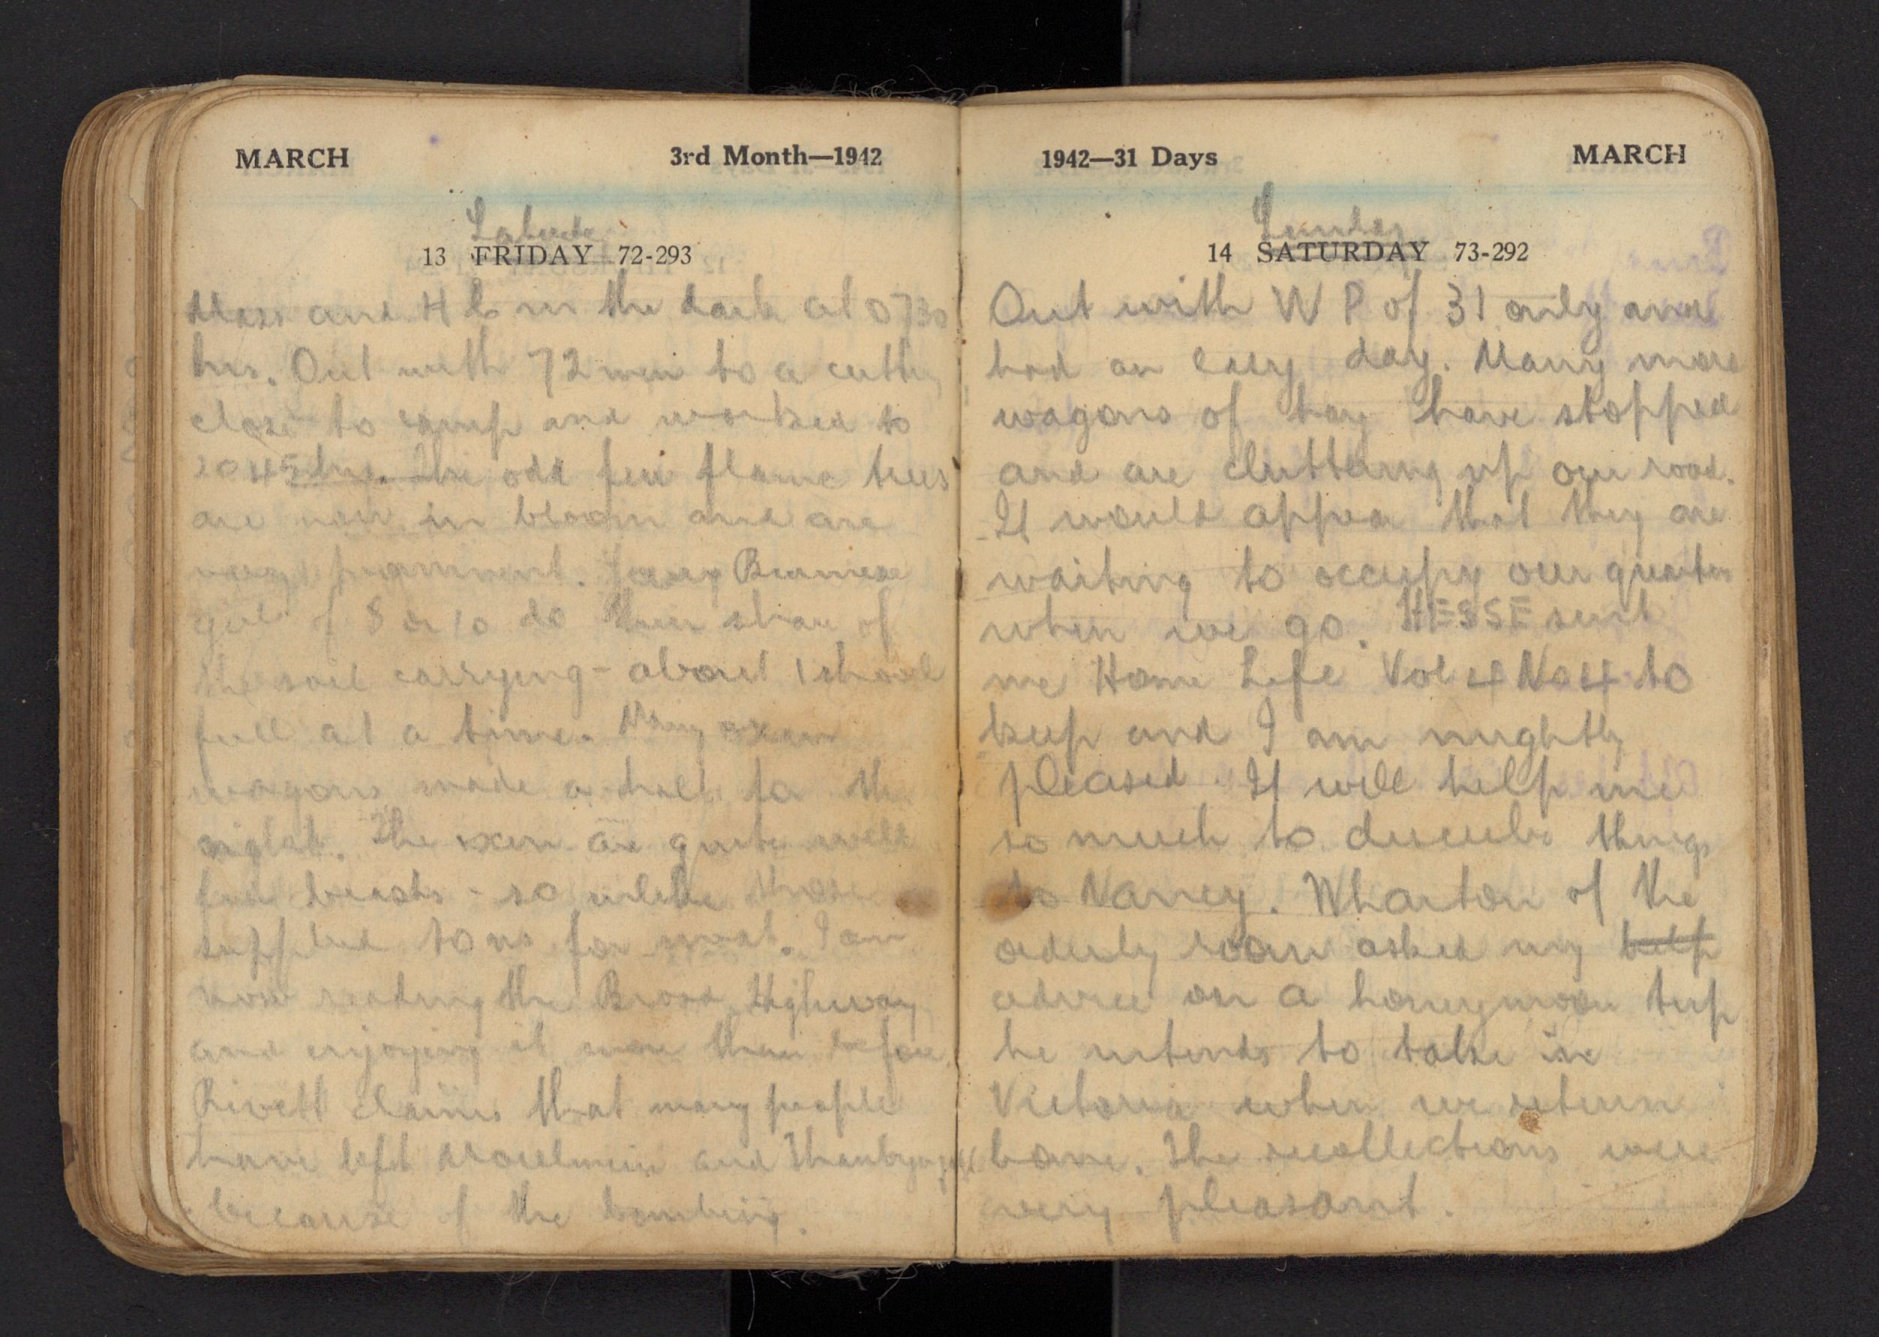 MARCH 3rd Month—1942
Saturday
13 FRIDAY 72-293
Mass and H C in the dark at 0730
hrs. Out with 72 men to a cutting
close to camp and worked to
2045 hrs. The odd few flame trees
are now in bloom and are
very prominent. Burmese
girls of 8 or 10 do their share of
the soil carrying - about 1 shovel
full at a time. Many oxen
wagons made a halt for the
night. The oxen are quite well
fed beasts - so unlike those
supplied to us for meat. I am
now reading the Broad Highway
and enjoying it more than before
Rivett claims that many people
have left Moulmein and Thanbyuzayat
because of the bombing.
1942—31 Days MARCH
Sunday
14 SATURDAY 73-292
Out with W P of 31 only and
had an easy day. Many more
wagons of hay have stopped
and are cluttering up our road.
It would appear that they are
waiting to occupy our quarters
when we go. HESSE sent
me Home Life Vol 4 No 4 to
keep and I am mightly
pleased. It will help me
so much to describe things
to Nancy. Wharton of the
orderly room asked my help
advice on a honeymoon trip
he intends to take in
Victoria when we return
home. The recollections were
very pleasant.